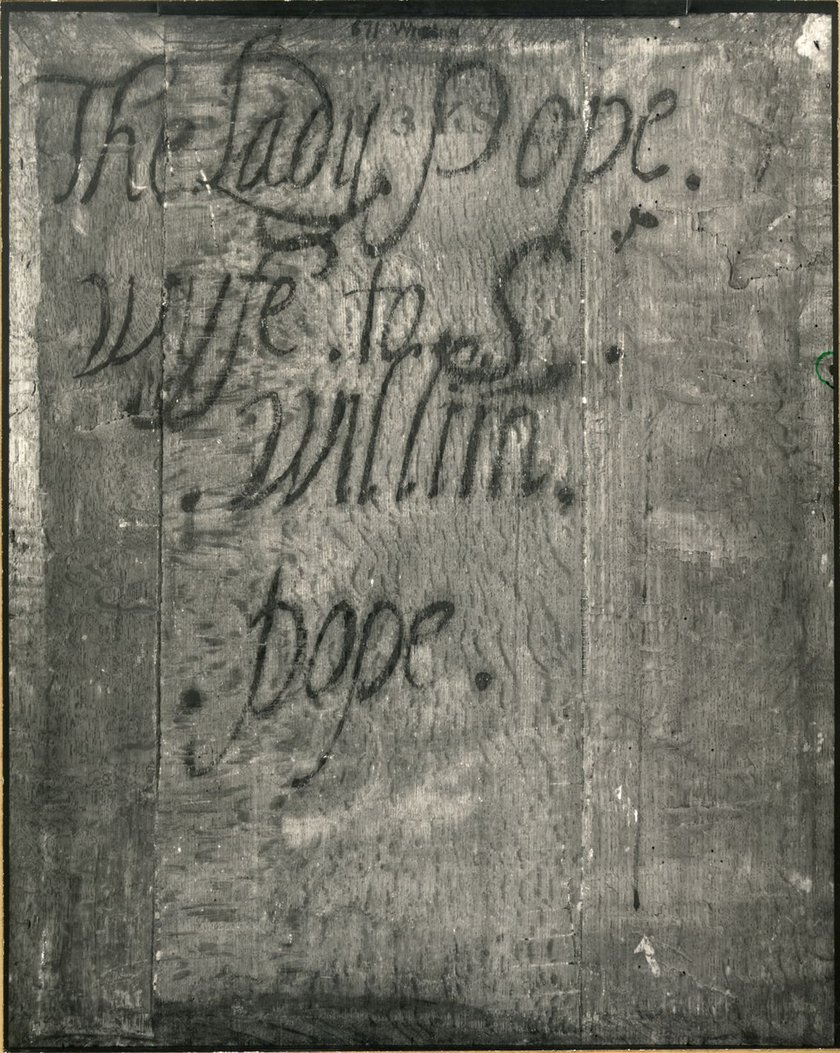 The Lady Pope.
wyfe . to S .
. willim .
. pope .